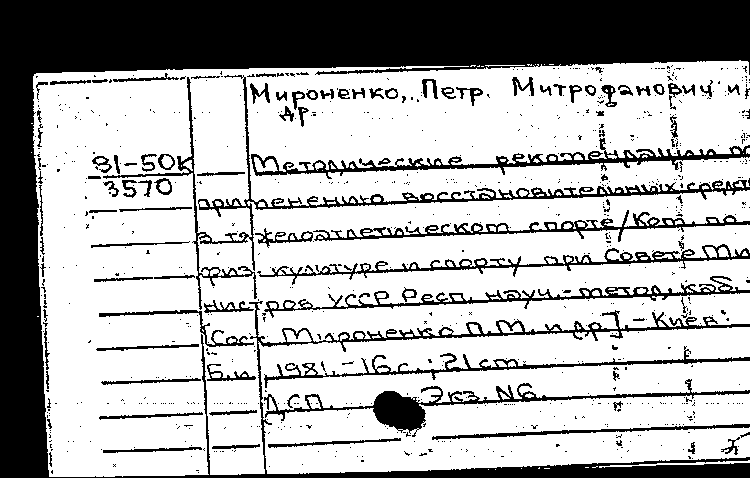 Мироненко, Петр Митрофанович и
др.
81-50к
3570
Методические рекомендации по
применению восстановительных средст
в тяжелоатлетическом спорте/Ком. по
физ. культуре и спорту при Совете Ми
нистров УССР, Респ. науч.-метод. каб.
[Сост. Мироненко П.М. и др.].-Киев:
Б.и., 1981.-16с.; 21ст.
ДСП. Экз. N6.